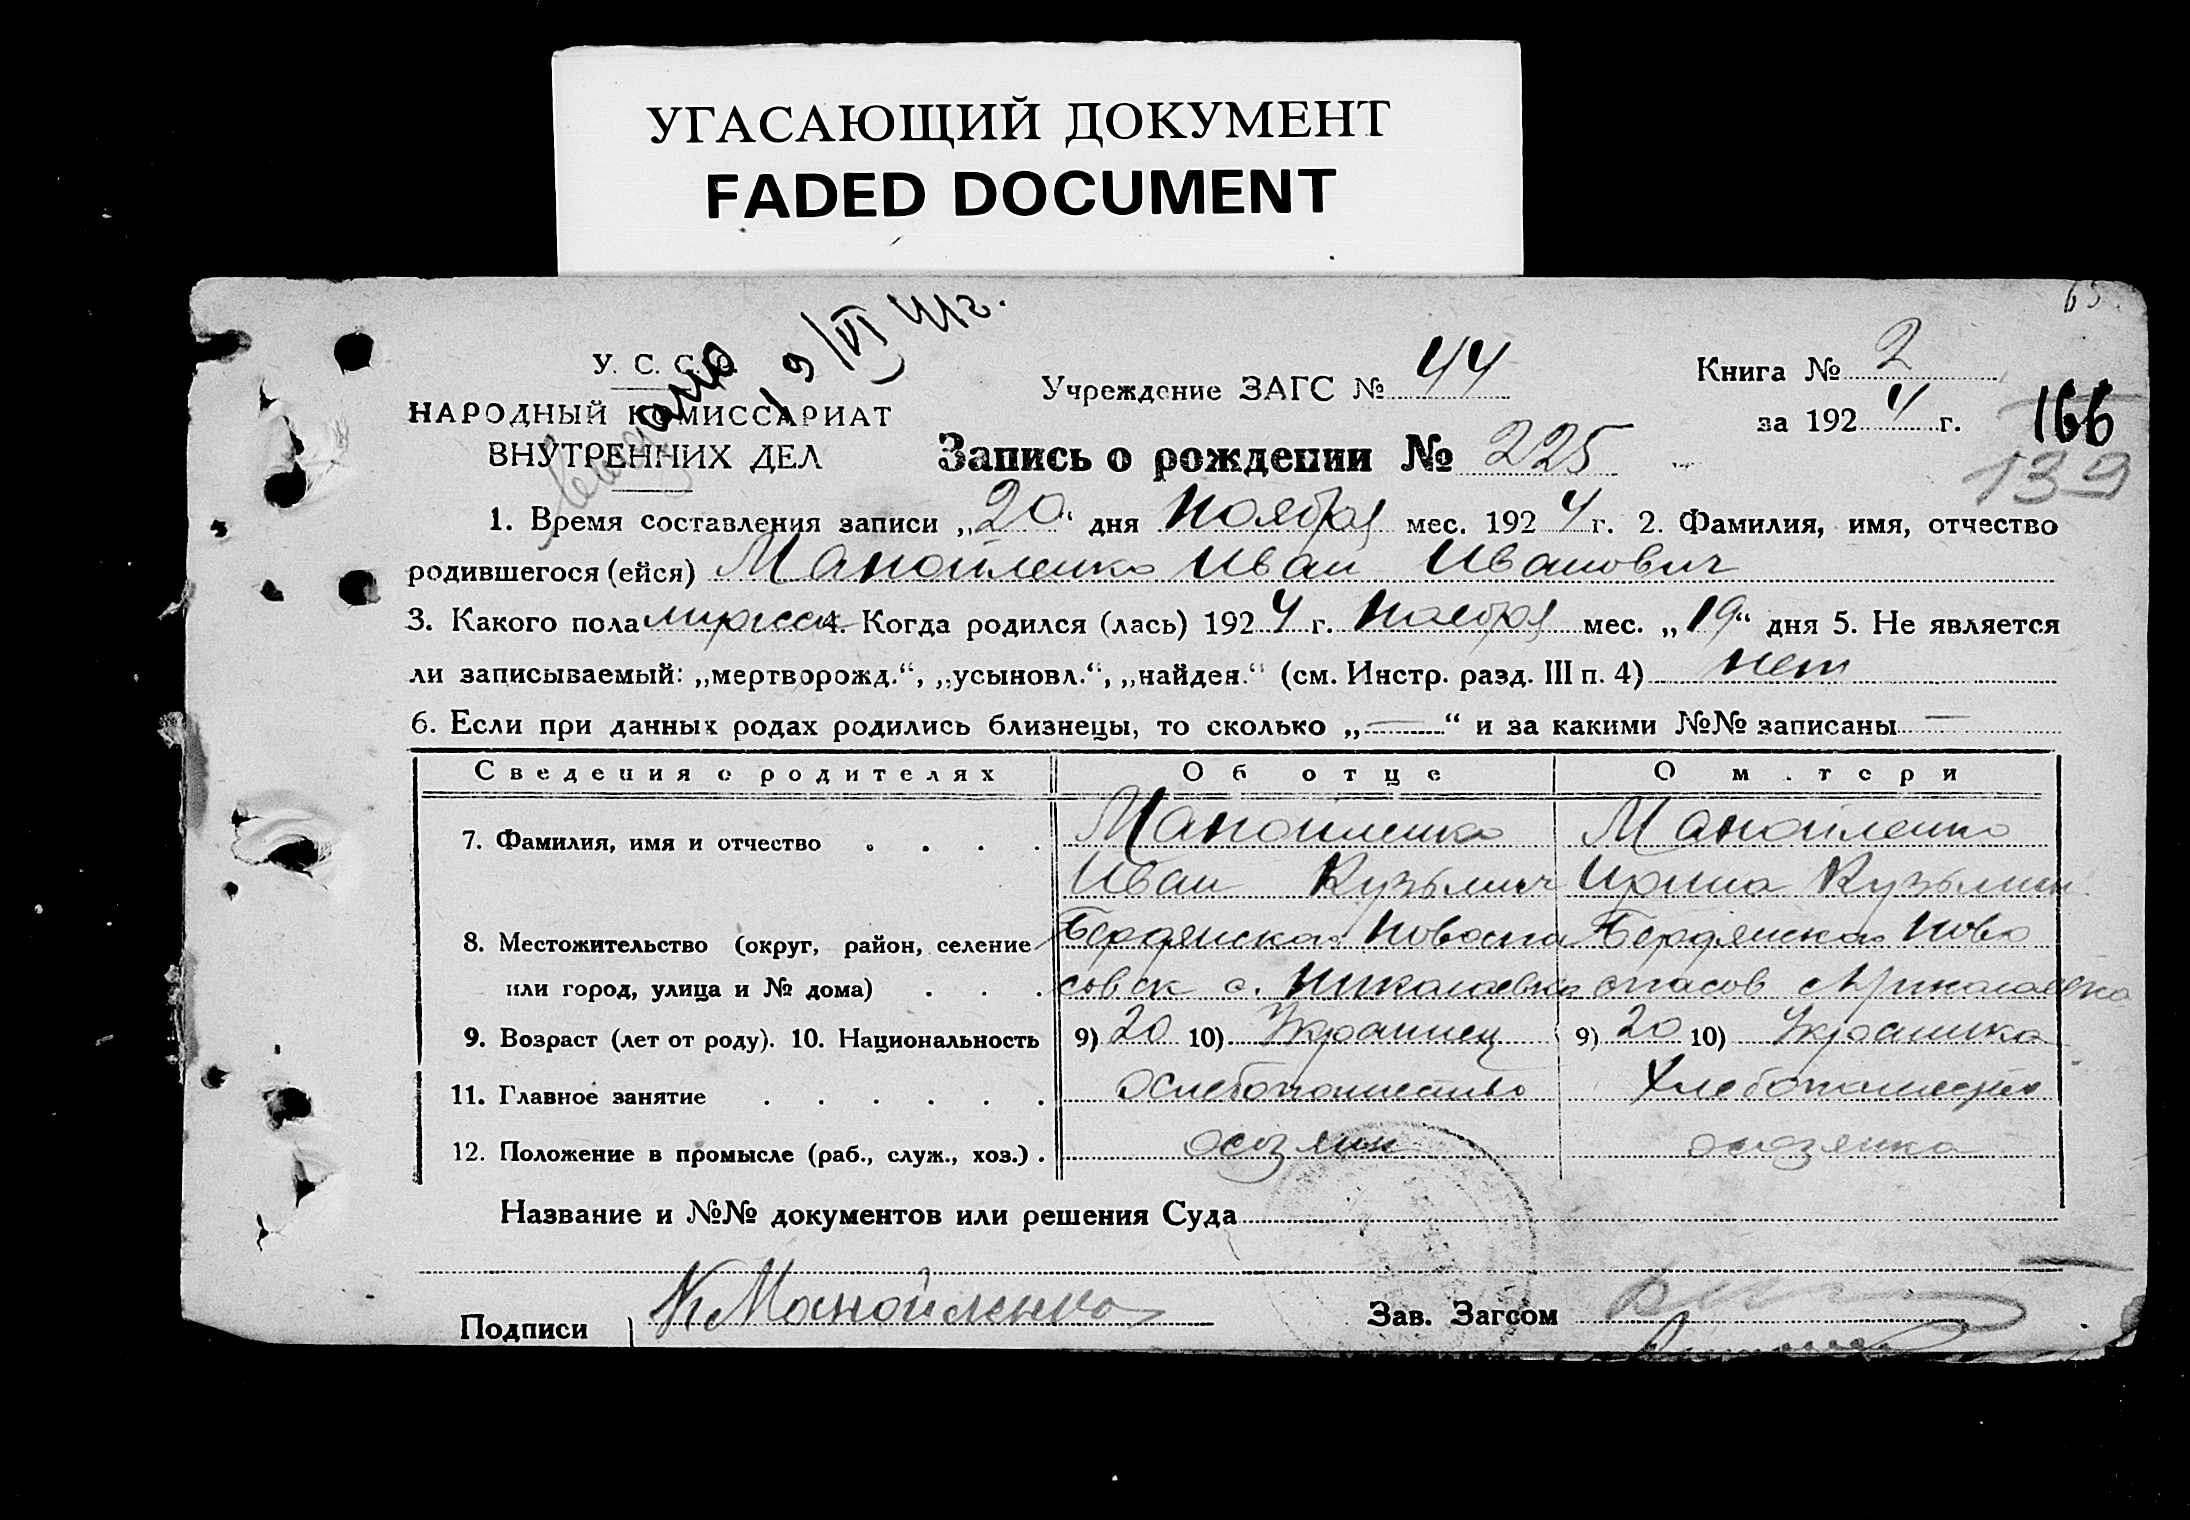 УГАСАЮЩИЙ ДОКУМЕНТ
FADED DOCUMENT
65.
Выдано 19/VI 41г.
У. С. С. Р.
НАРОДНЫЙ КОМИССАРИАТ
ВНУТРЕННИХ ДЕЛ
Учреждение ЗАГС № 44
Книга № 2
за 1924 г.
166
139
Запись о рождении № 225
1. Время составления записи „20“ дня Ноября мес. 1924 г. 2. Фамилия, имя, отчество
родившегося (ейся) Манойленко Иван Иванович
3. Какого пола мужск 4. Когда родился (лась) 1924 г. Ноября мес. „19“ дня 5. Не является
ли записываемый: „мертворожд.“, „усыновл.“, „найден.“ (см. Инстр. разд. III п. 4) нет
6. Если при данных родах родились близнецы, то сколько „—“ и за какими №№ записаны —
Сведения о родителях Об отце О м.тери
7. Фамилия, имя и отчество . . . . Манойленко Манойленко
Иван Кузьмич Ирина Кузьмин
8. Местожительство (округ, район, селение Бердянская Новоспа Бердянская Ново
или город, улица и № дома) . . . совск с. Николаевка спасов с Николаевка
9. Возраст (лет от роду). 10. Национальность 9) 20 10) Украинец 9) 20 10) Украинка
11. Главное занятие . . . . . . Хлебопашество Хлебопашество
12. Положение в промысле (раб., служ., хоз.) . хозяин хозяйка
Название и №№ документов или решения Суда
Подписи Манойленко Зав. Загсом